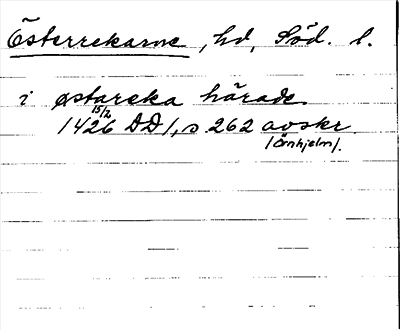 Österrekarne, hd, Söd. l.
i østareka härade
15/2
1426 DD1, s 262 avskr
/Örnhjelm/.